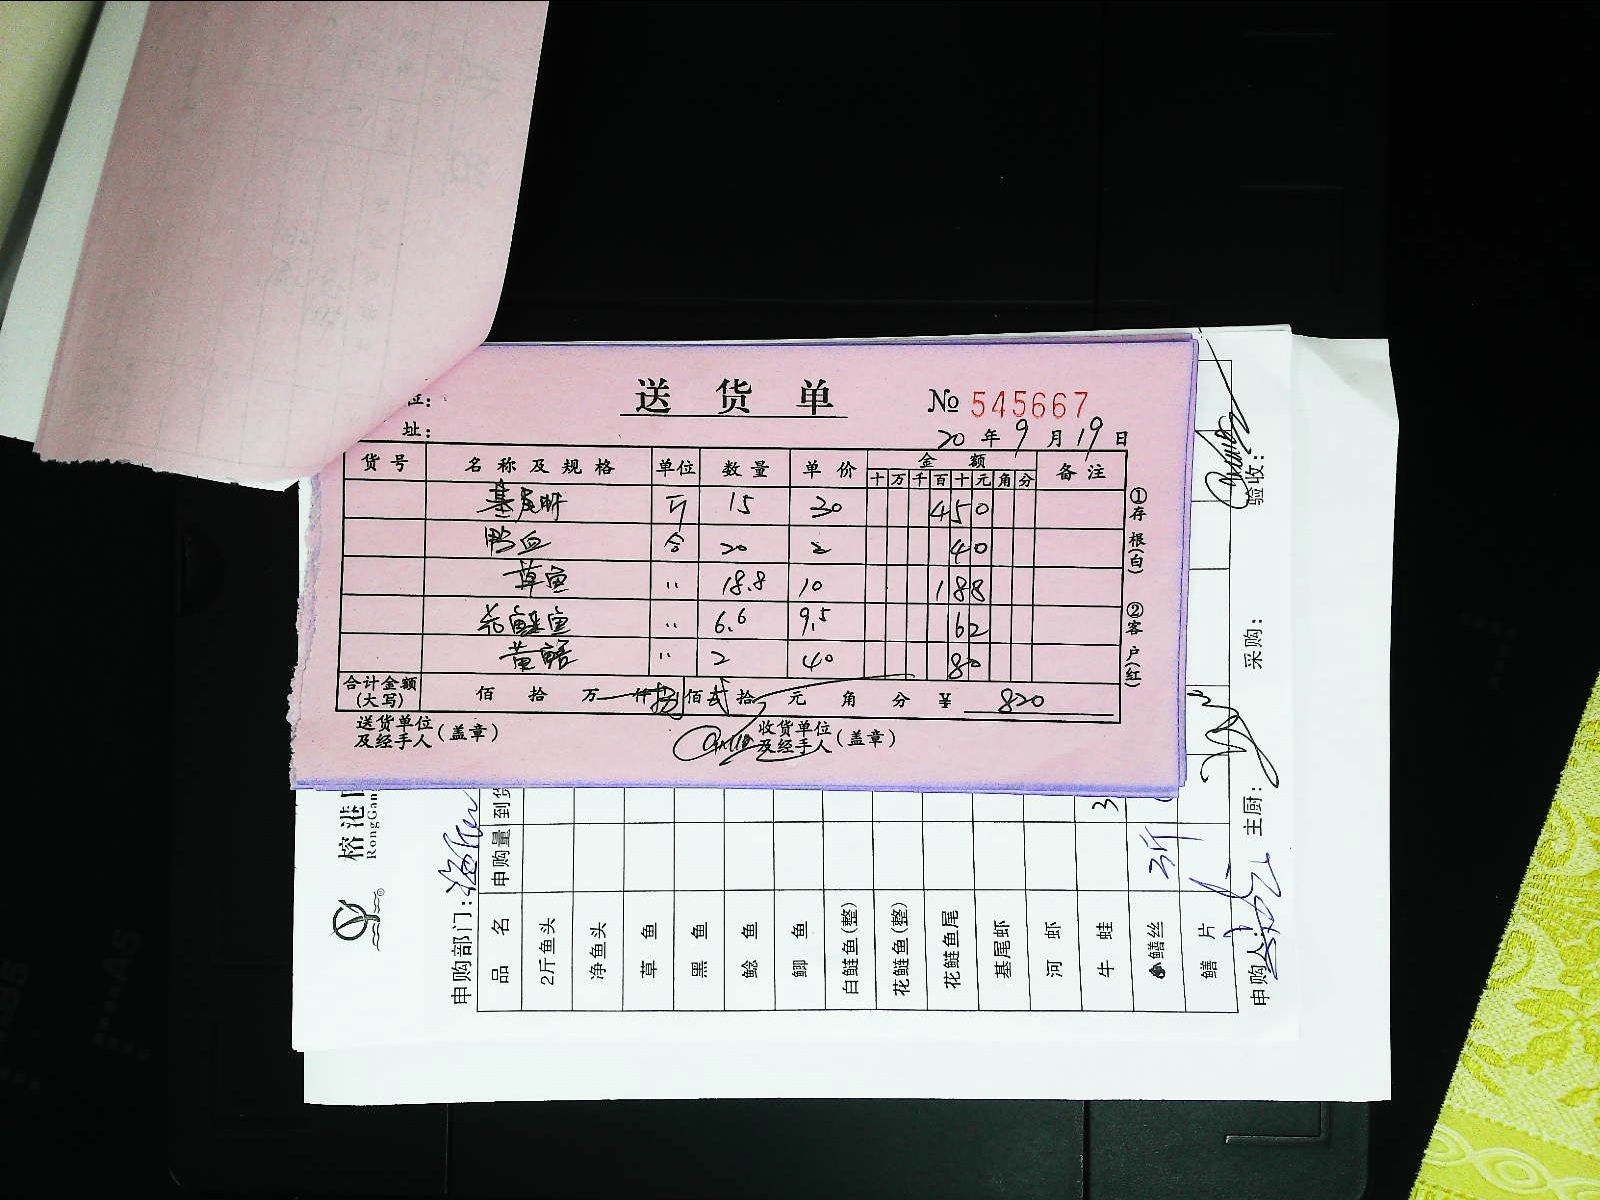 位:
送货单 № 545667
址:
20年9月19日
货号 名称及规格 单位 数量 单价 金额 备注
十 万 千 百 十 元 角 分
基尾虾 斤 15 30 450
鸭血 合 20 2 40
草鱼 〃 18.8 10 188
花鲢鱼 〃 6.6 9.5 62
黄鳝 〃 2 40 80
合计金额(大写) 佰 拾 万 仟 捌佰 贰拾 元 角 分 ¥ 820
送货单位及经手人(盖章) 收货单位及经手人(盖章)
①存根(白) ②客户(红)
榕港
RongGan
申购部门:
品名 申购量 到货
2斤鱼头
净鱼头
草鱼
黑鱼
鲶鱼
鲫鱼
白鲢鱼(整)
花鲢鱼(整)
花鲢鱼尾
基尾虾
河虾
牛蛙 3
鳝丝 3斤
鳝片
申购人: 主厨: 采购: 验收: